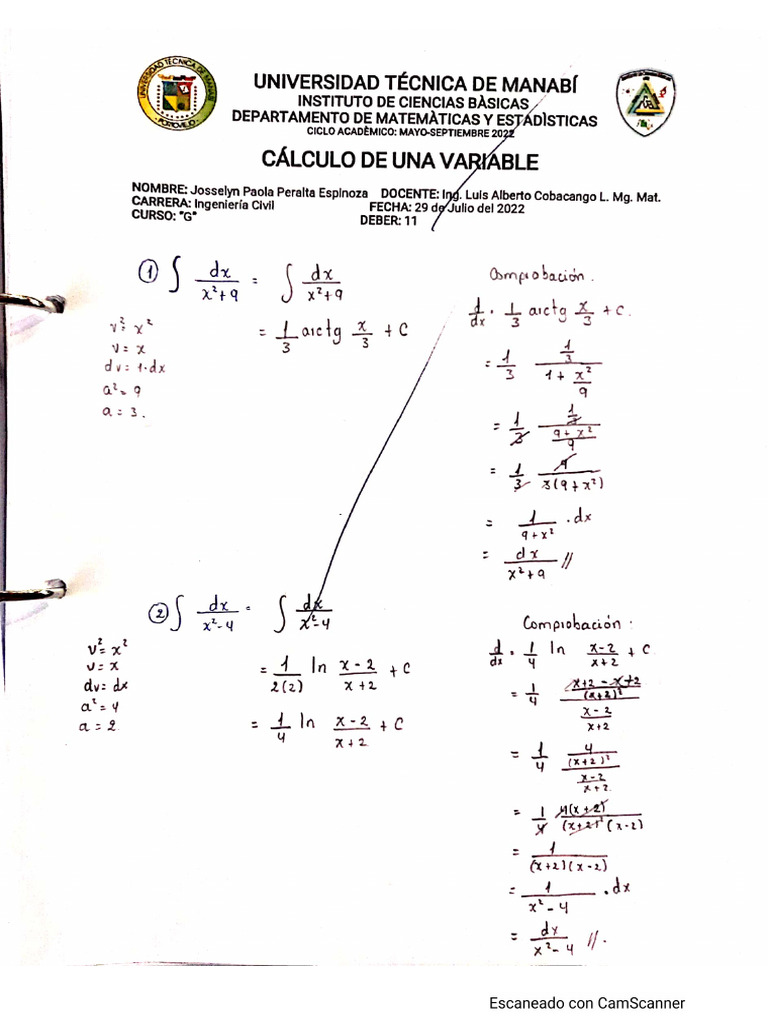 UNIVERSIDAD TÉCNICA DE MANABÍ
INSTITUTO DE CIENCIAS BÀSICAS
DEPARTAMENTO DE MATEMÀTICAS Y ESTÁDÌSTICAS
CICLO ACADÈMICO: MAYO-SEPTIEMBRE 2022
CÁLCULO DE UNA VARIABLE
NOMBRE: Josselyn Paola Peralta Espinoza DOCENTE: Ing. Luis Alberto Cobacango L. Mg. Mat.
CARRERA: Ingeniería Civil FECHA: 29 de Julio del 2022
CURSO: "G" DEBER: 11
① ∫ dx/(x²+9) = ∫ dx/(x²+9)
= 1/3 arctg x/3 + C
v² = x²
v = x
dv = 1·dx
a² = 9
a = 3.
Comprobación.
d/dx · 1/3 arctg x/3 + C.
= 1/3 (1/3)/(1 + x²/9)
= 1/3 (1/3)/((9+x²)/9)
= 1/3 9/(3(9+x²))
= 1/(9+x²) · dx
= dx/(x²+9) //
② ∫ dx/(x²-4) = ∫ dx/(x²-4)
= 1/(2(2)) ln (x-2)/(x+2) + C
= 1/4 ln (x-2)/(x+2) + C
v² = x²
v = x
dv = dx
a² = 4
a = 2
Comprobación:
d/dx · 1/4 ln (x-2)/(x+2) + C
= 1/4 ((x+2-x+2)/(x+2)²)/((x-2)/(x+2))
= 1/4 (4/(x+2)²)/((x-2)/(x+2))
= 1/4 4(x+2)/((x+2)²(x-2))
= 1/((x+2)(x-2))
= 1/(x²-4) · dx
= dx/(x²-4) //.
Escaneado con CamScanner